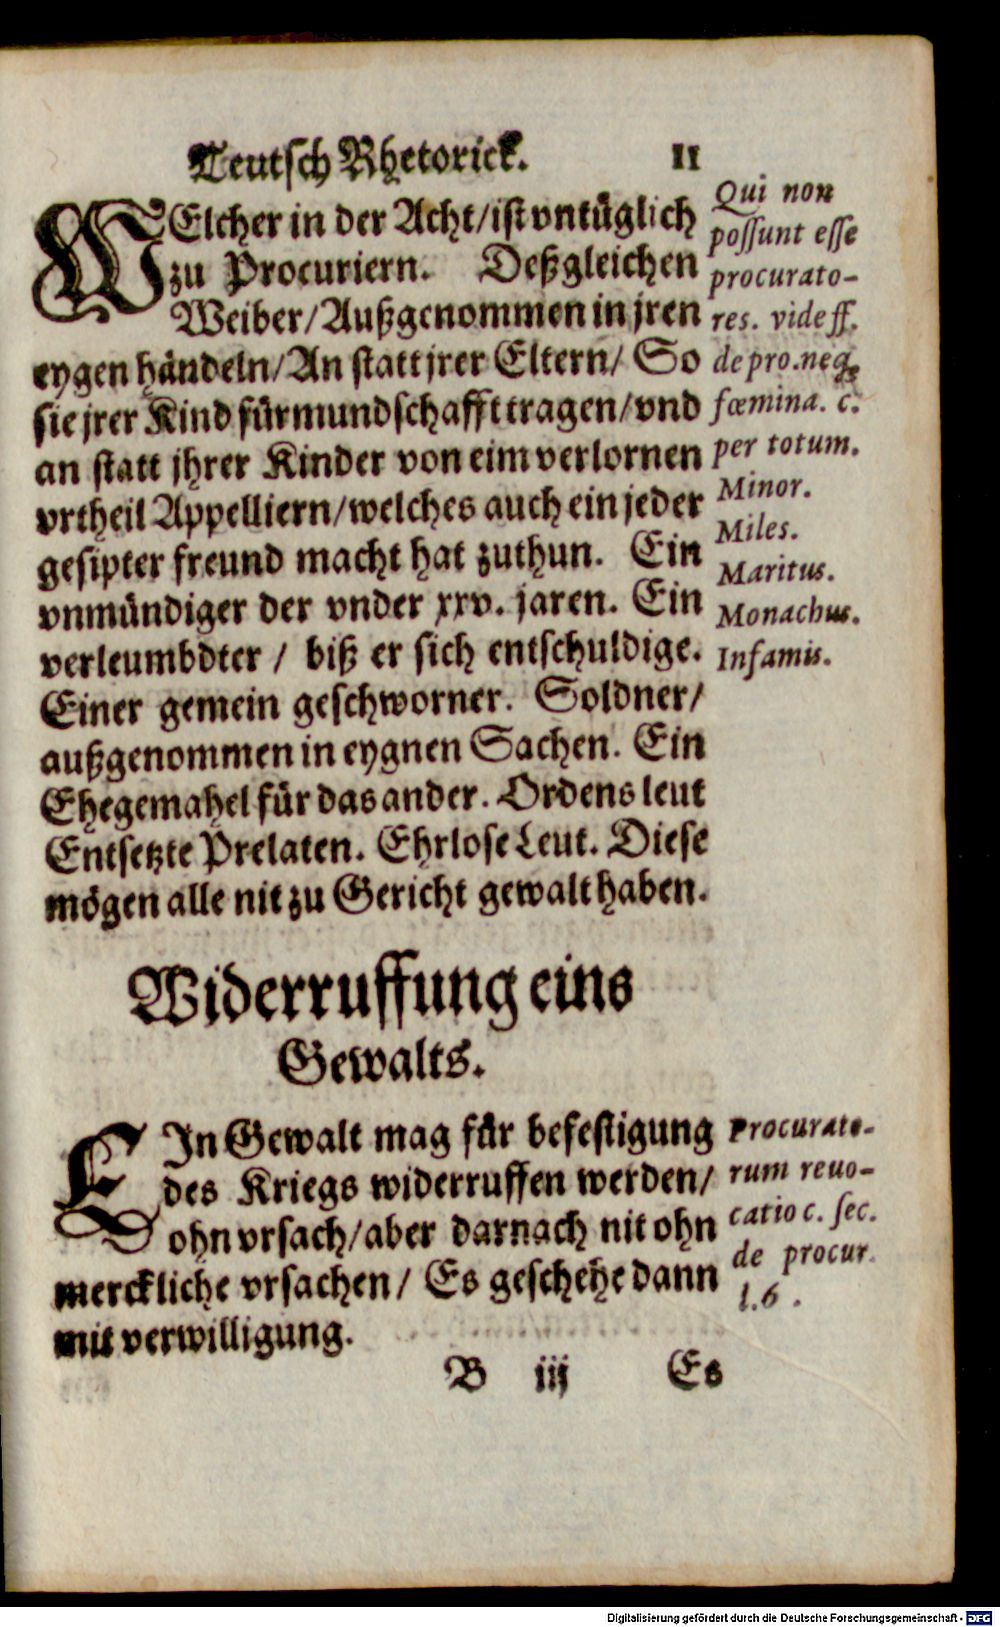 Teutsch Rhetorick. 11
WElcher in der Acht/ist vntüglich
zu Procuriern. Deßgleichen
Weiber/Außgenommen in jren
eygen händeln/An statt jrer Eltern/ So
sie jrer Kind fürmundschafft tragen/vnd
an statt jhrer Kinder von eim verlornen
vrtheil Appelliern/welches auch ein jeder
gesipter freund macht hat zuthun. Ein
vnmündiger der vnder xxv. jaren. Ein
verleumbdter / biß er sich entschuldige.
Einer gemein geschworner. Soldner/
außgenommen in eygnen Sachen. Ein
Ehegemahel für das ander. Ordens leut
Entsetzte Prelaten. Ehrlose Leut. Diese
mögen alle nit zu Gericht gewalt haben.
Qui non
possunt esse
procurato-
res. vide ff.
de pro. neq;
fœmina. c.
per totum.
Minor.
Miles.
Maritus.
Monachus.
Infamis.
Widerruffung eins
Gewalts.
EIn Gewalt mag für befestigung
des Kriegs widerruffen werden/
ohn vrsach/aber darnach nit ohn
merckliche vrsachen/ Es geschehe dann
mit verwilligung.
Procurato-
rum reuo-
catio c. sec.
de procur.
l.6.
B iij Es
Digitalisierung gefördert durch die Deutsche Forschungsgemeinschaft - DFG